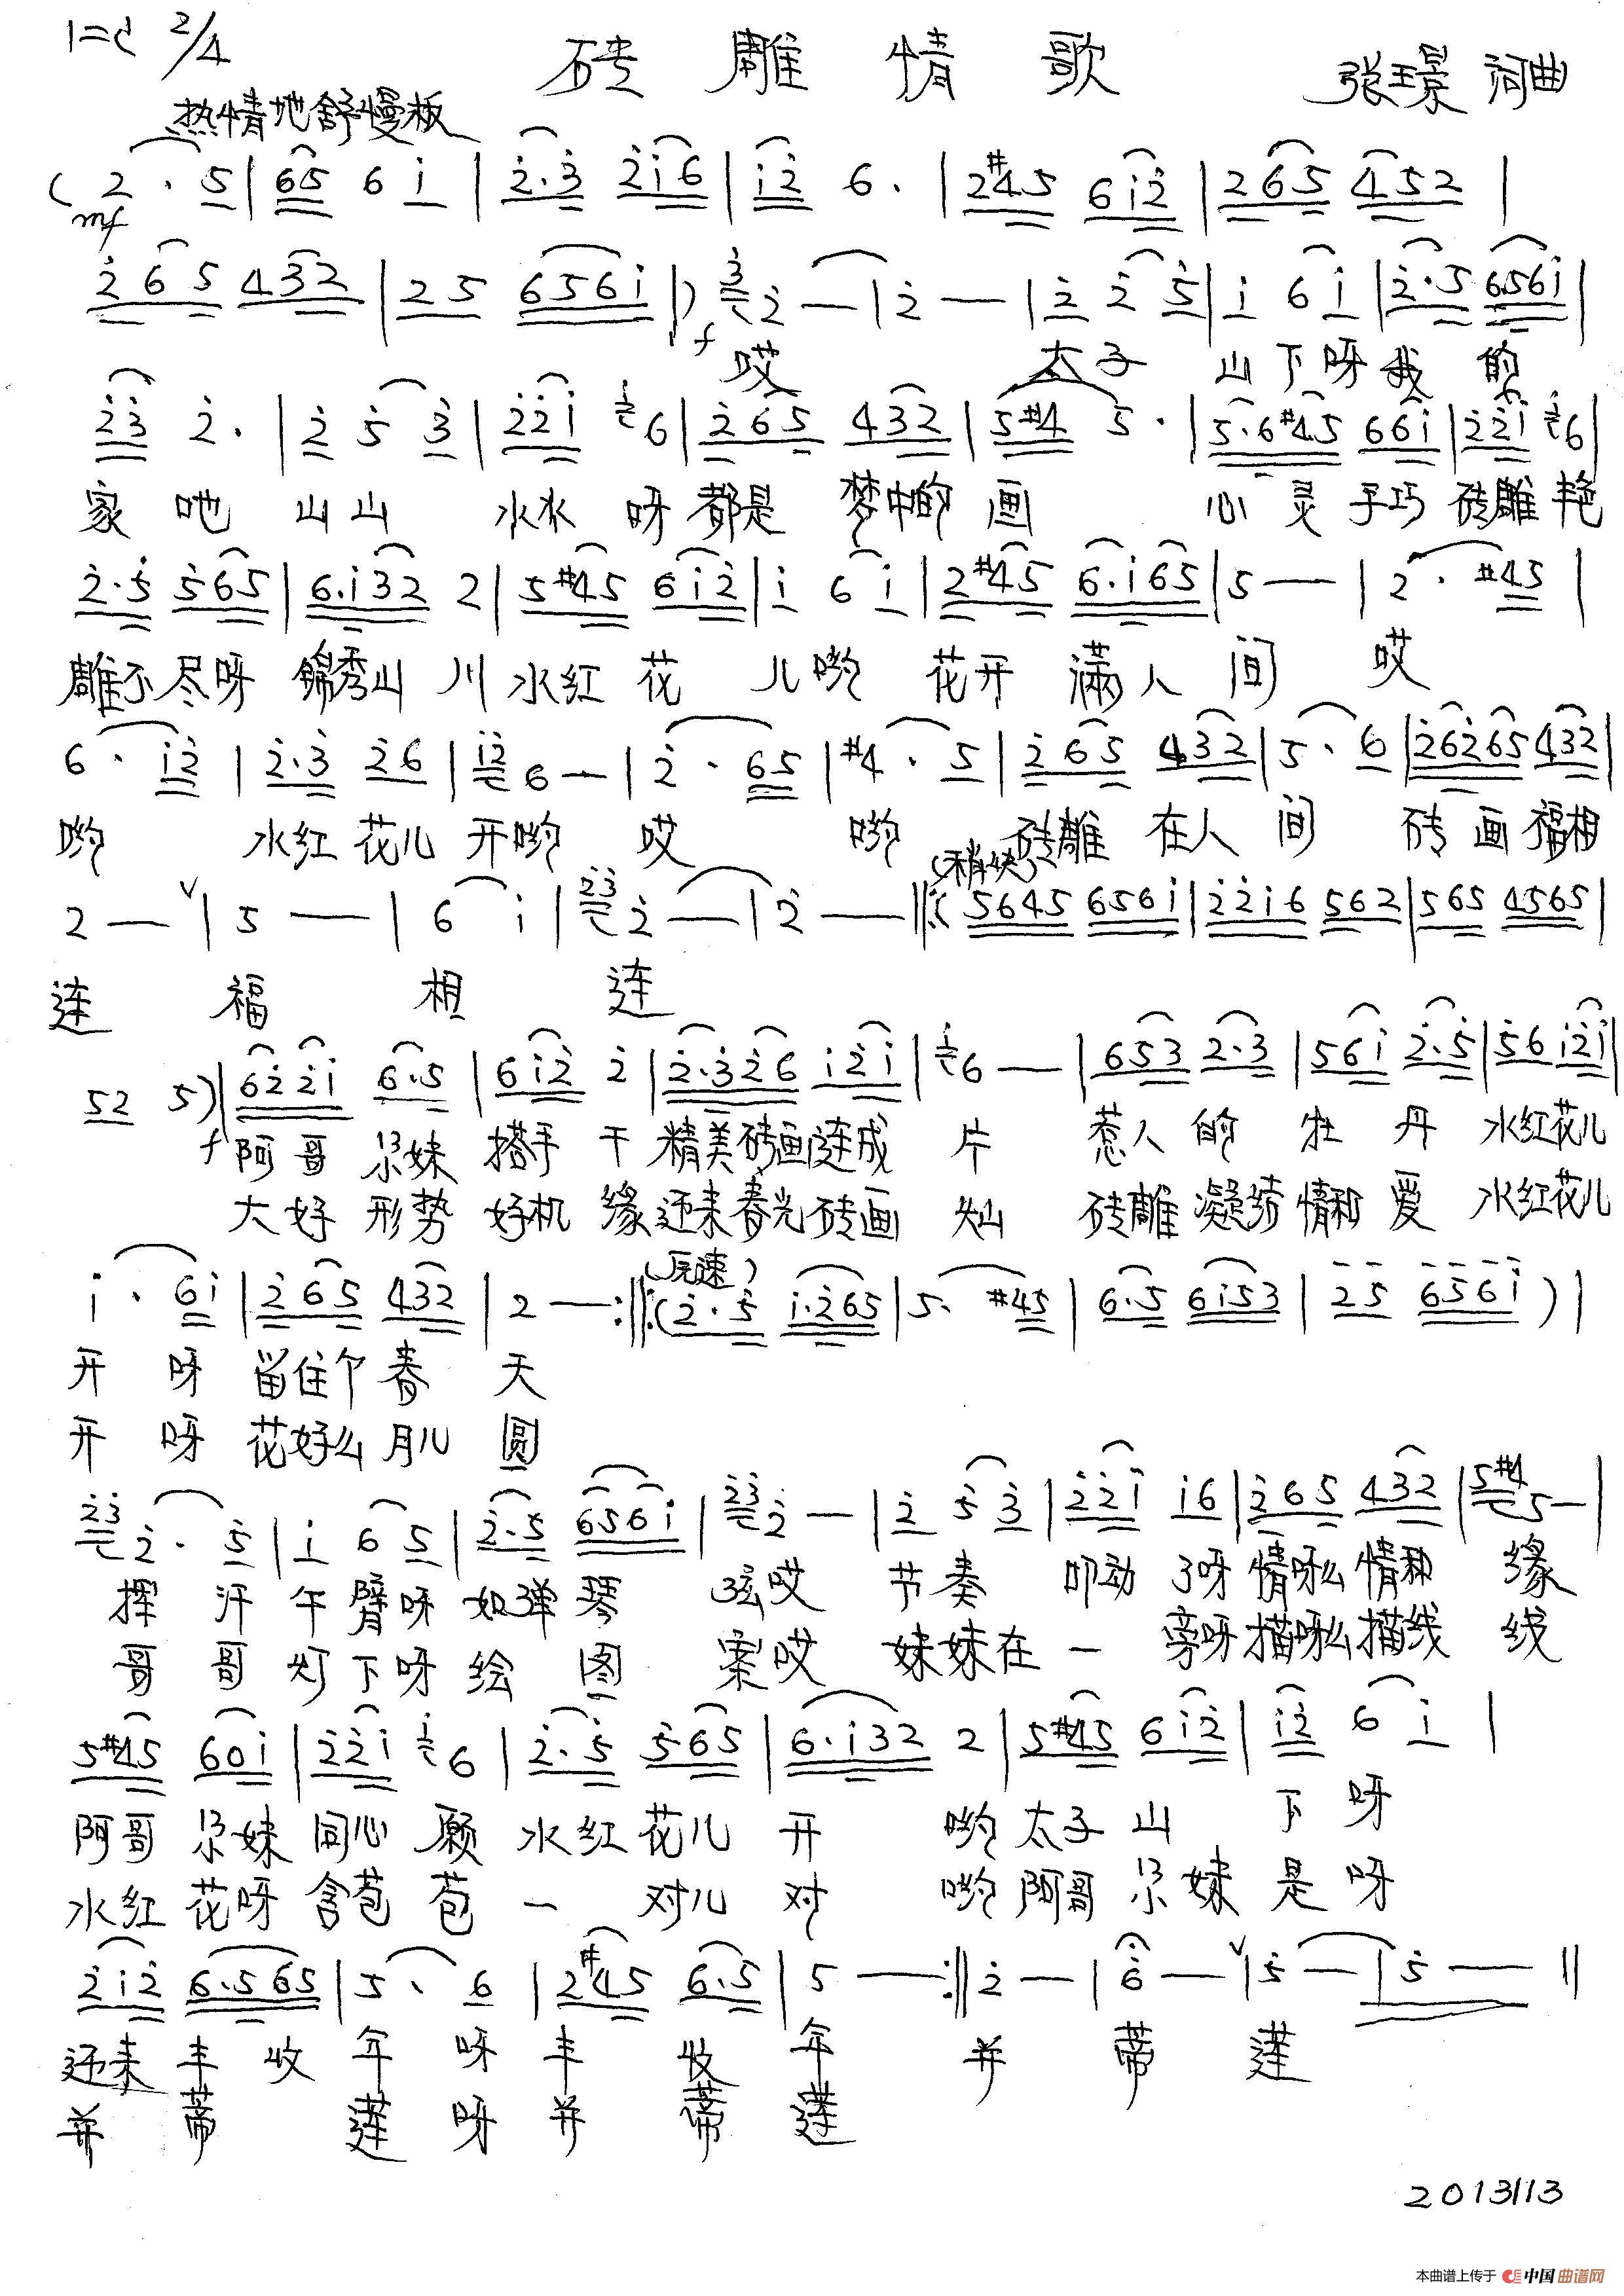 1=C 2/4
砖雕情歌
张璟 词曲
热情地舒慢板
( 2 · 5 | 65 6 i | 2·3 2i6 | i2 6· | 2#45 6i2 | 265 452 |
mf
265 432 | 25 656i | ) 3 2 — | 2 — | 2 2 5 | i 6 i | 2·5 656i |
f 哎 太子 山下呀我的
23 2· | 2 5 3 | 22i i6 | 265 432 | 5#4 5· | 5·6#45 66i | 22i i6 |
家吔 山山 水水 呀都是 梦中的 画 心灵手巧 砖雕艳
2·5 565 | 6·i32 2 | 5#45 6i2 | i 6 i | 2#45 6·i65 | 5 — | 2· #45 |
雕不尽呀 锦秀山 川 水红 花 儿哟 花开 满人 间 哎
6· i2 | 2·3 26 | i2 6 — | 2· 65 | #4· 5 | 265 432 | 5· 6 | 26265 432 |
哟 水红 花儿 开哟 哎 哟 砖雕 在人 间 砖画 福相
(稍快)
2 — | 5 — | 6 i | 23 2 — | 2 — ‖: ( 5645 656i | 22i6 562 | 565 4565 |
连 福 相 连
52 5 ) | 622i 6·5 | 6i2 2 | 2·326 i2i | i6 — | 653 2·3 | 56i 2·5 | 56 i2i |
f 阿哥 尕妹 搭手 干 精美砖画连成 片 惹人的 牡丹 水红花儿
大好 形势 好机 缘 还来春光砖画 灿 砖雕凝结情和爱 水红花儿
(原速)
i· 6i | 265 432 | 2 — :‖: ( 2·5 i·265 | 5· #45 | 6·5 6i53 | 25 656i ) |
开 呀 留住个 春 天
开 呀 花好么 月儿 圆
23 2· 5 | i 6 5 | 2·5 656i | 23 2 — | 2 5 3 | 22i i6 | 265 432 | 5#4 5 — |
挥 汗 午臂呀 如弹 琴 弦哎 节奏 叩动 了呀 情呀么 情和 缘
哥 哥 灯下呀 绘 图 案哎 妹妹在一 旁呀描呀么描线 线
5#45 60i | 22i i6 | 2·5 565 | 6·i32 2 | 5#45 6i2 | i2 6 i |
阿哥 尕妹 同心 愿 水红 花儿 开 哟 太子 山 下 呀
水红 花呀 含苞 苞 一 对儿 对 哟 阿哥 尕妹 是 呀
2i2 6·565 | 5· 6 | 2#45 6·5 | 5 — :‖ 2 — | 6 — | 5 — | 5 — ‖
还来 丰 收 年 呀 丰 收 年 并 蒂 莲
并 蒂 莲 呀 并 蒂 莲
2013113
本曲谱上传于 中国曲谱网